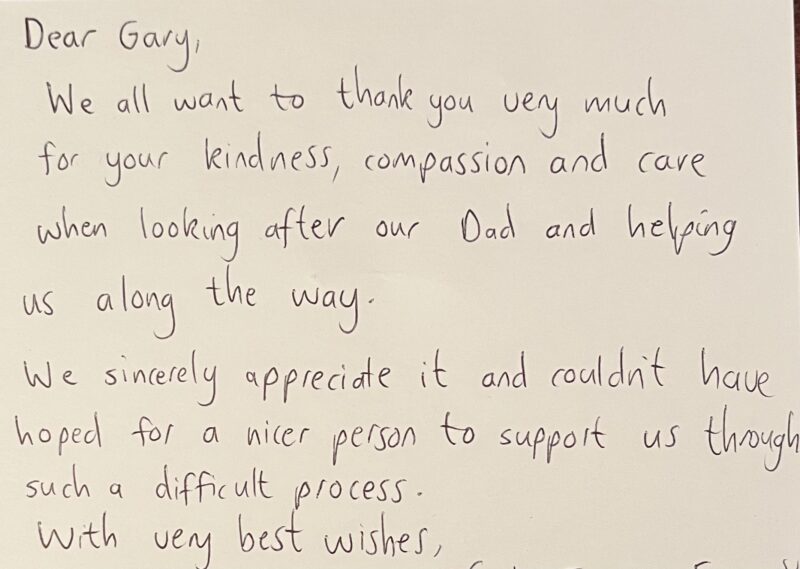 Dear Gary,
We all want to thank you very much
for your kindness, compassion and care
when looking after our Dad and helping
us along the way.
We sincerely appreciate it and couldn't have
hoped for a nicer person to support us through
such a difficult process.
With very best wishes,